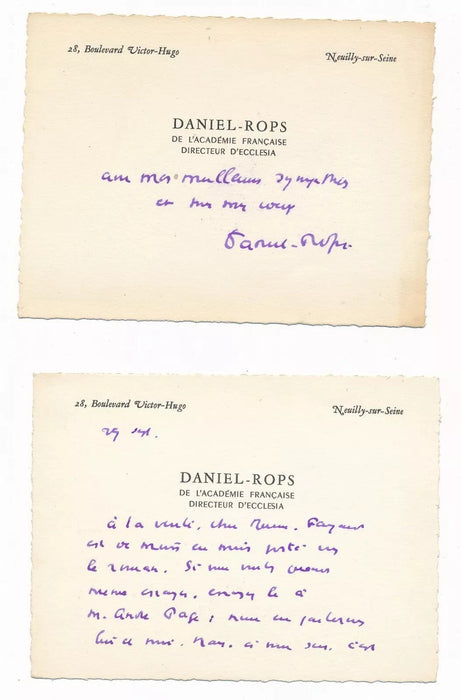 28, Boulevard Victor-Hugo
Neuilly-sur-Seine
DANIEL-ROPS
DE L'ACADÉMIE FRANÇAISE
DIRECTEUR D'ECCLESIA
avec mes meilleures sympathies
et tous mes voeux
Daniel-Rops
28, Boulevard Victor-Hugo
Neuilly-sur-Seine
29 sept.
DANIEL-ROPS
DE L'ACADÉMIE FRANÇAISE
DIRECTEUR D'ECCLESIA
à la vérité, cher Fayard
est de moins en moins porté vers
le roman. Si vous voulez
même essayer, envoyez le à
M. André Page ; nous en parlerons
lui et moi. Mais, à mon sens, c'est